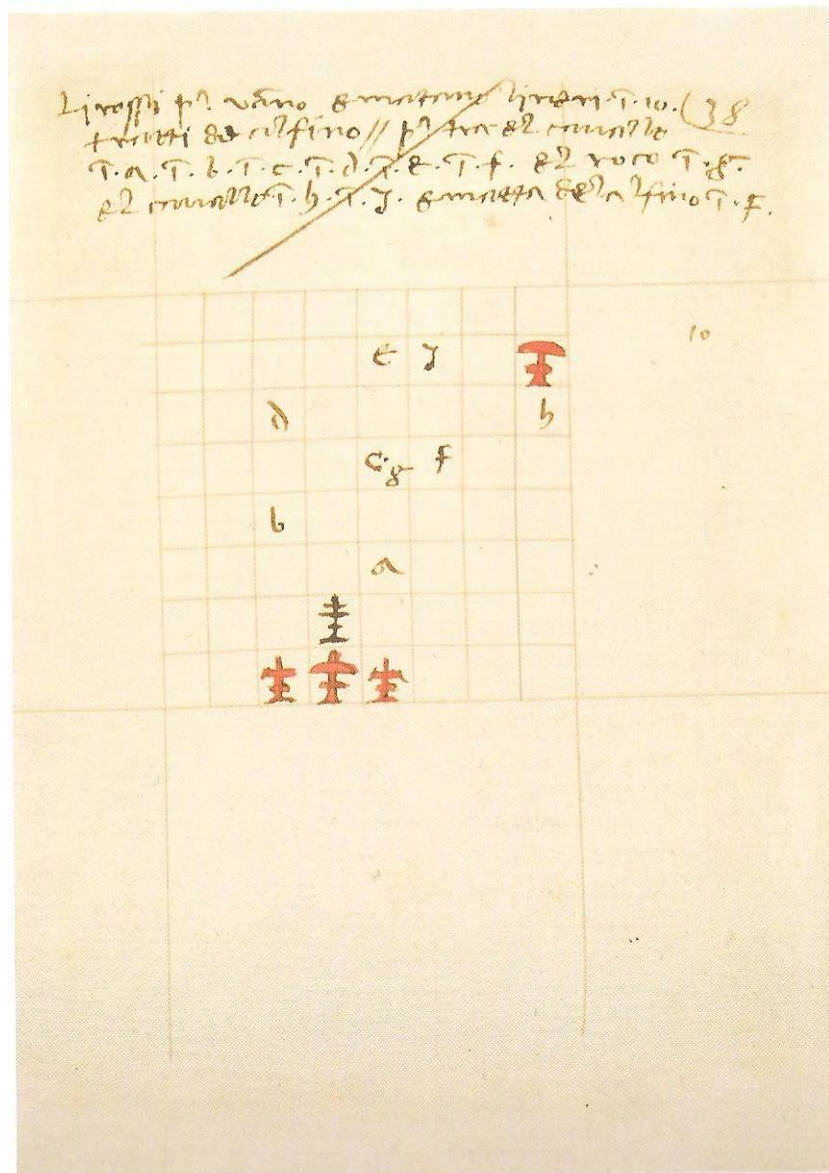 Li rossi pͥ. vāno e matano li neri ī. 10. (38
tratti de alfino // pͥ tra el cavallo
ī. a. ī. b. ī. c. ī. d. ī. e. ī. f. el roco ī. g.
el cavallo ī. h. ī. J. e matta de l alfino ī. f.
10
e J
d h
c. g f
b
a